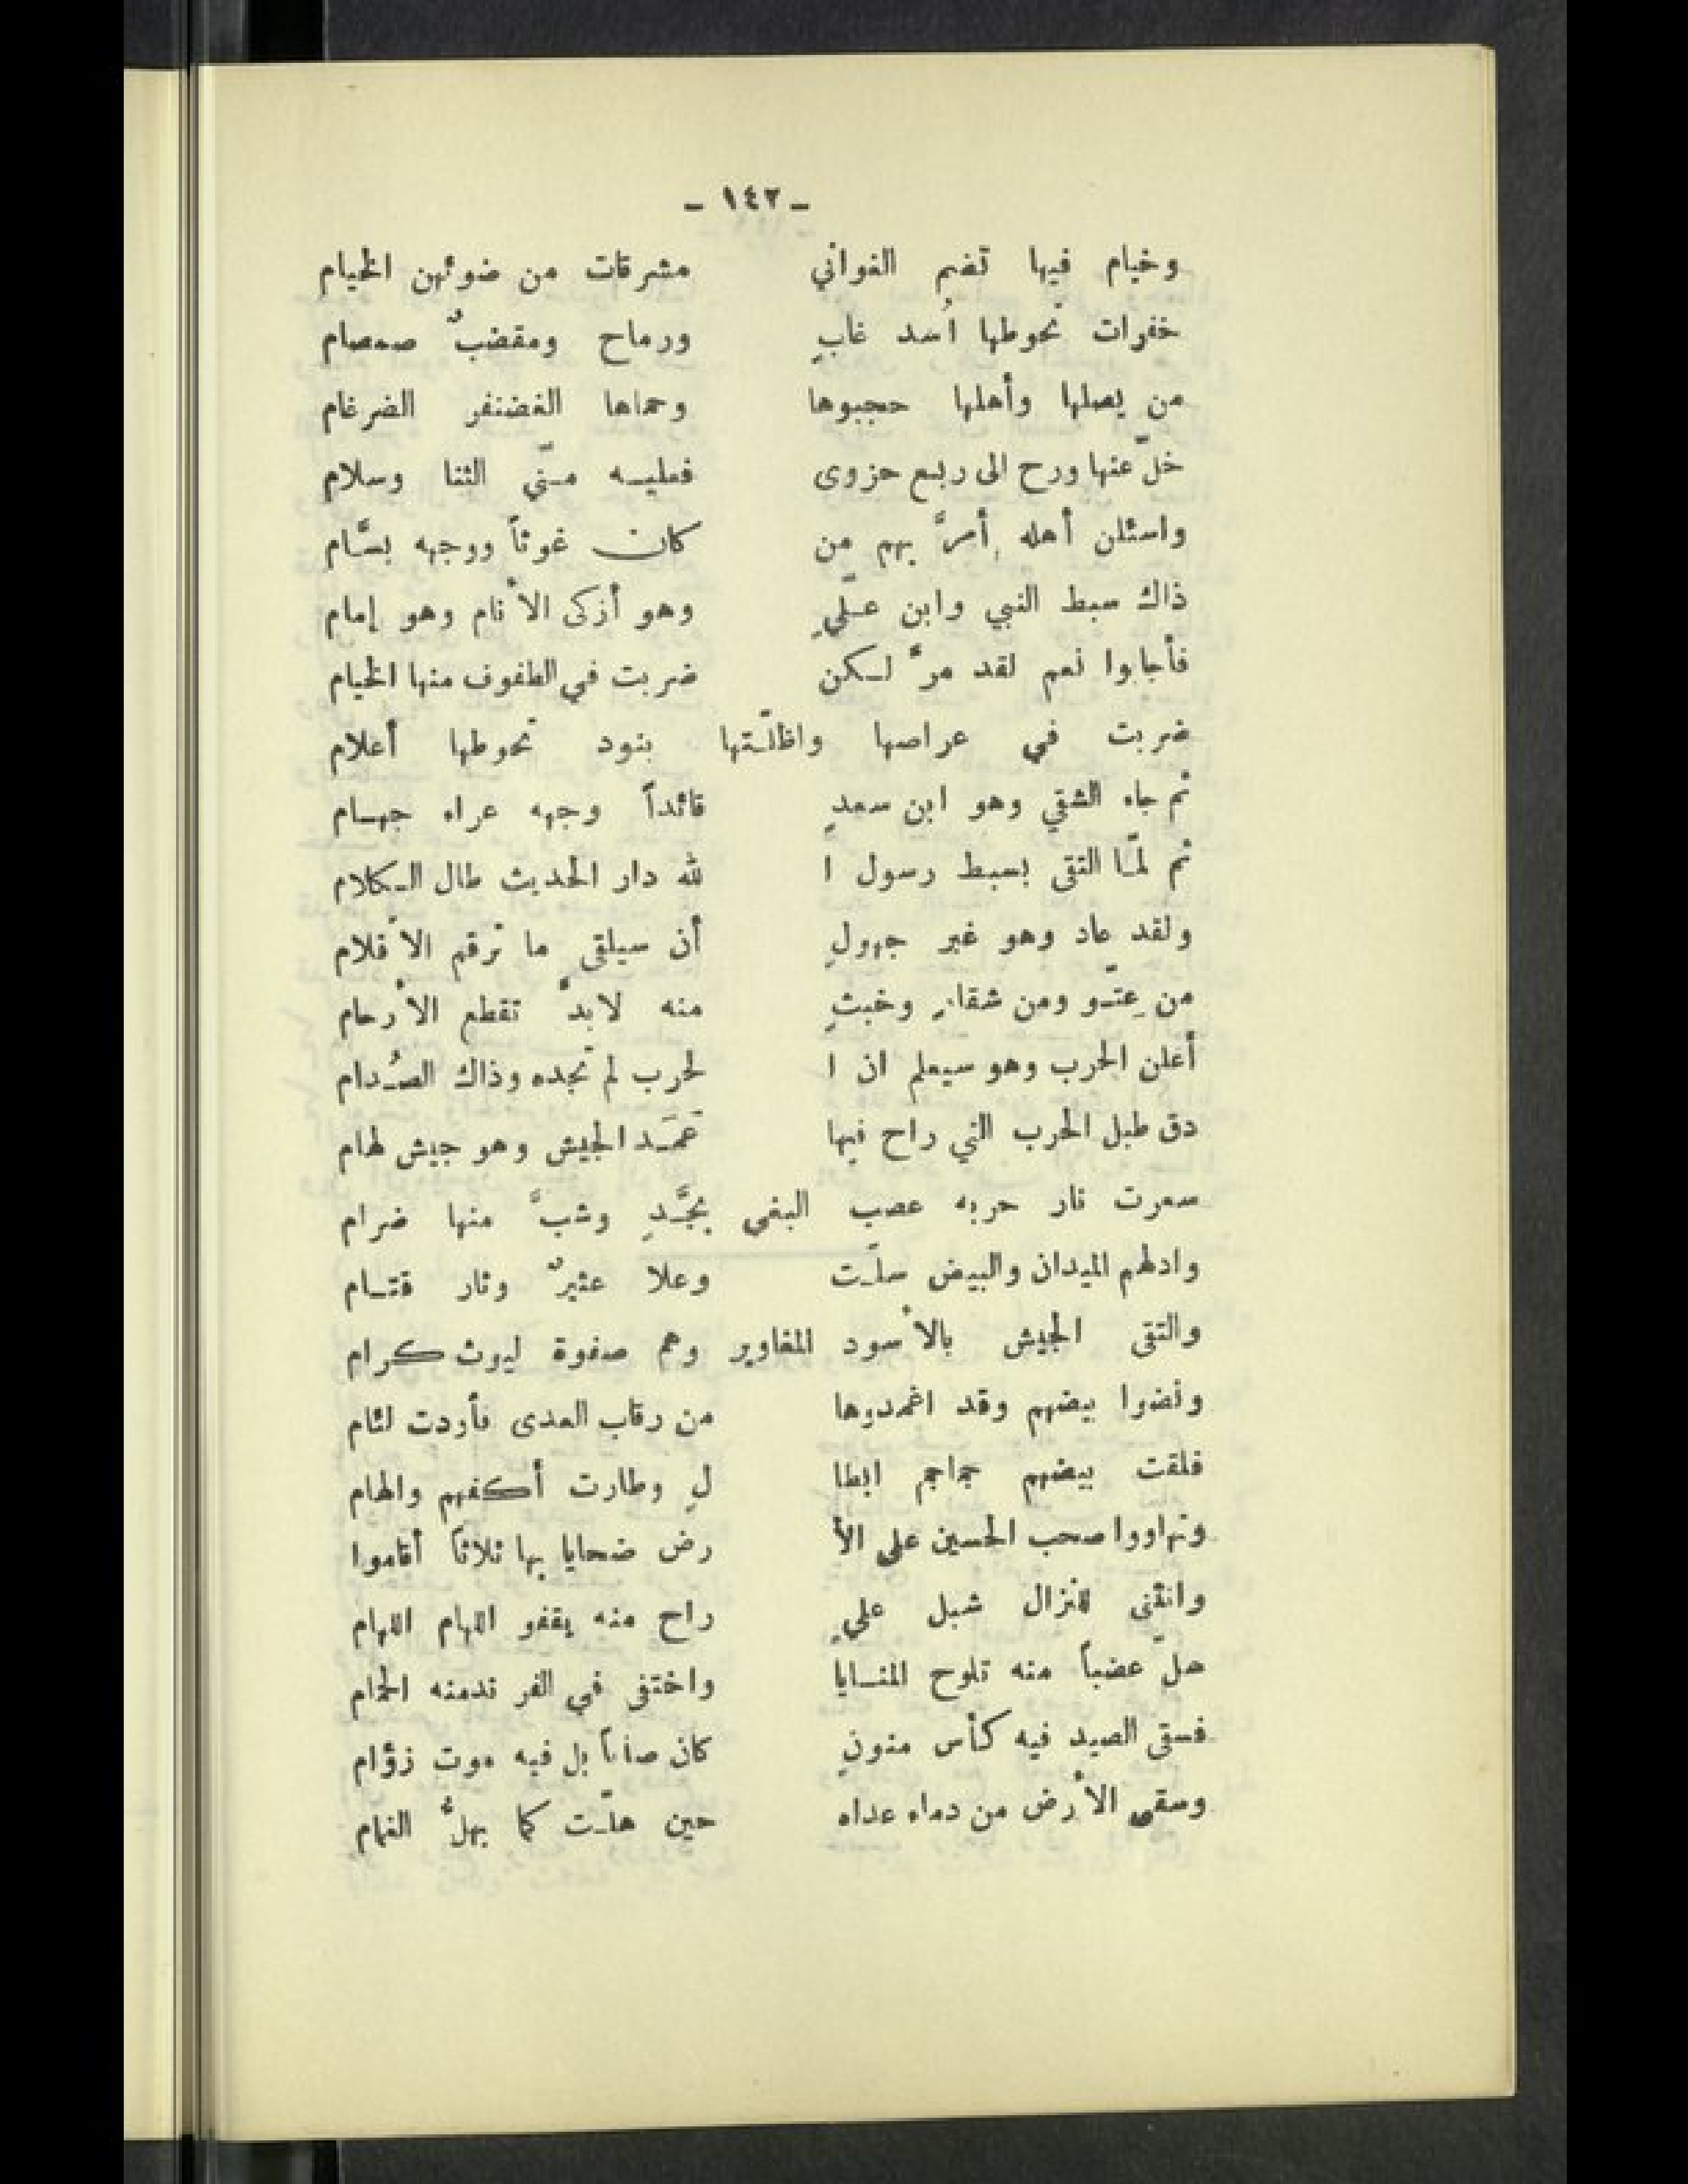 - ١٤٢ -
وخيام فيها تضم الغواني مشرقات من ضوئهن الخيام
خفرات تحوطها أُسد غابٍ ورماح ومقضبٌ صمصام
من يصلها وأهلها حجبوها وحماها الغضنفر الضرغام
خلّ عنها ورح الى ربع حزوى فعليه منّي الثنا وسلام
واسئلن أهله أمرَّ بهم من كان غوثاً ووجهه بسّام
ذاك سبط النبي وابن عليّ وهو أزكى الأنام وهو إمام
فأجابوا نعم لقد مرَّ لكن ضربت في الطفوف منها الخيام
ضربت في عراصها واظلّتها بنود تحوطها أعلام
ثم جاء الشقي وهو ابن سعدٍ قائداً وجهه عراه جهام
ثم لمّا التقى بسبط رسول ا لله دار الحديث طال الكلام
ولقد عاد وهو غير جهولٍ أن سيلقى ما ترقم الأقلام
من عِتوّ ومن شقاءٍ وخبثٍ منه لابدَّ تقطع الأرحام
أعلن الحرب وهو سيعلم ان ا لحرب لم تجده وذاك الصُدام
دق طبل الحرب التي راح فيها عمَد الجيش وهو جيش لهام
سعرت نار حربه عصب البغي بجَّدٍ وشبَّ منها ضرام
وادلهم الميدان والبيض سلّت وعلا عثيرٌ وثار قتام
والتقى الجيش بالأسود المغاوير وهم صفوة ليوث كرام
ونضوا بيضهم وقد اغمدوها من رقاب العدى فأردت لئام
فلقت بيضهم جماجم ابطا لٍ وطارت أكفهم والهام
وتهاووا صحب الحسين على الأ رض ضحايا بها ثلاثاً أقاموا
وانثنى للنزال شبل عليٍ راح منه يقفو اللهام اللهام
سلّ عضباً منه تلوح المنايا واختفى في الفر ندمنه الحمام
فسقى الصيد فيه كأس منونٍ كان صاباً بل فيه موت زؤام
وسقى الأرض من دماء عداه حين هلّت كما يهلُّ الغمام